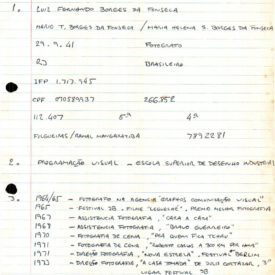 1. LUIZ FERNANDO BORGES DA FONSECA
MARIO T. BORGES DA FONSECA / MARIA HELENA S. BORGES DA FONSECA
29.9.41 FOTOGRAFO
RJ BRASILEIRO
IFP 1.717.945
CPF 070589937 266.852
112.407 6ª 4ª
FILGUEIRAS/RAMAL MANGARATIBA 7892281
2. PROGRAMAÇÃO VISUAL - ESCOLA SUPERIOR DE DESENHO INDUSTRIAL
3. 1964/65 - FOTOGRAFO NA AGENCIA GRAPHOS COMUNICAÇÃO VISUAL"
1965 - FESTIVAL JB. FILME "LEGUELHÉ", PREMIO MELHOR FOTOGRAFIA
1967 - ASSISTENCIA FOTOGRAFIA, "CARA A CARA"
1968 - ASSISTENCIA FOTOGRAFIA, "BRAVO GUERREIRO"
1970 - FOTOGRAFIA DE CENA, "PRA QUEM FICA TCHAU"
1971 - FOTOGRAFIA DE CENA, "ROBERTO CARLOS A 300 KM POR HORA"
1971 - DIREÇÃO FOTOGRAFIA, "NOVA ESTRELA", FESTIVAL BERLIM
1973 - DIREÇÃO FOTOGRAFIA, "A CASA TOMADA" DE JULIO CORTAZAR, 3º
LUGAR FESTIVAL JB